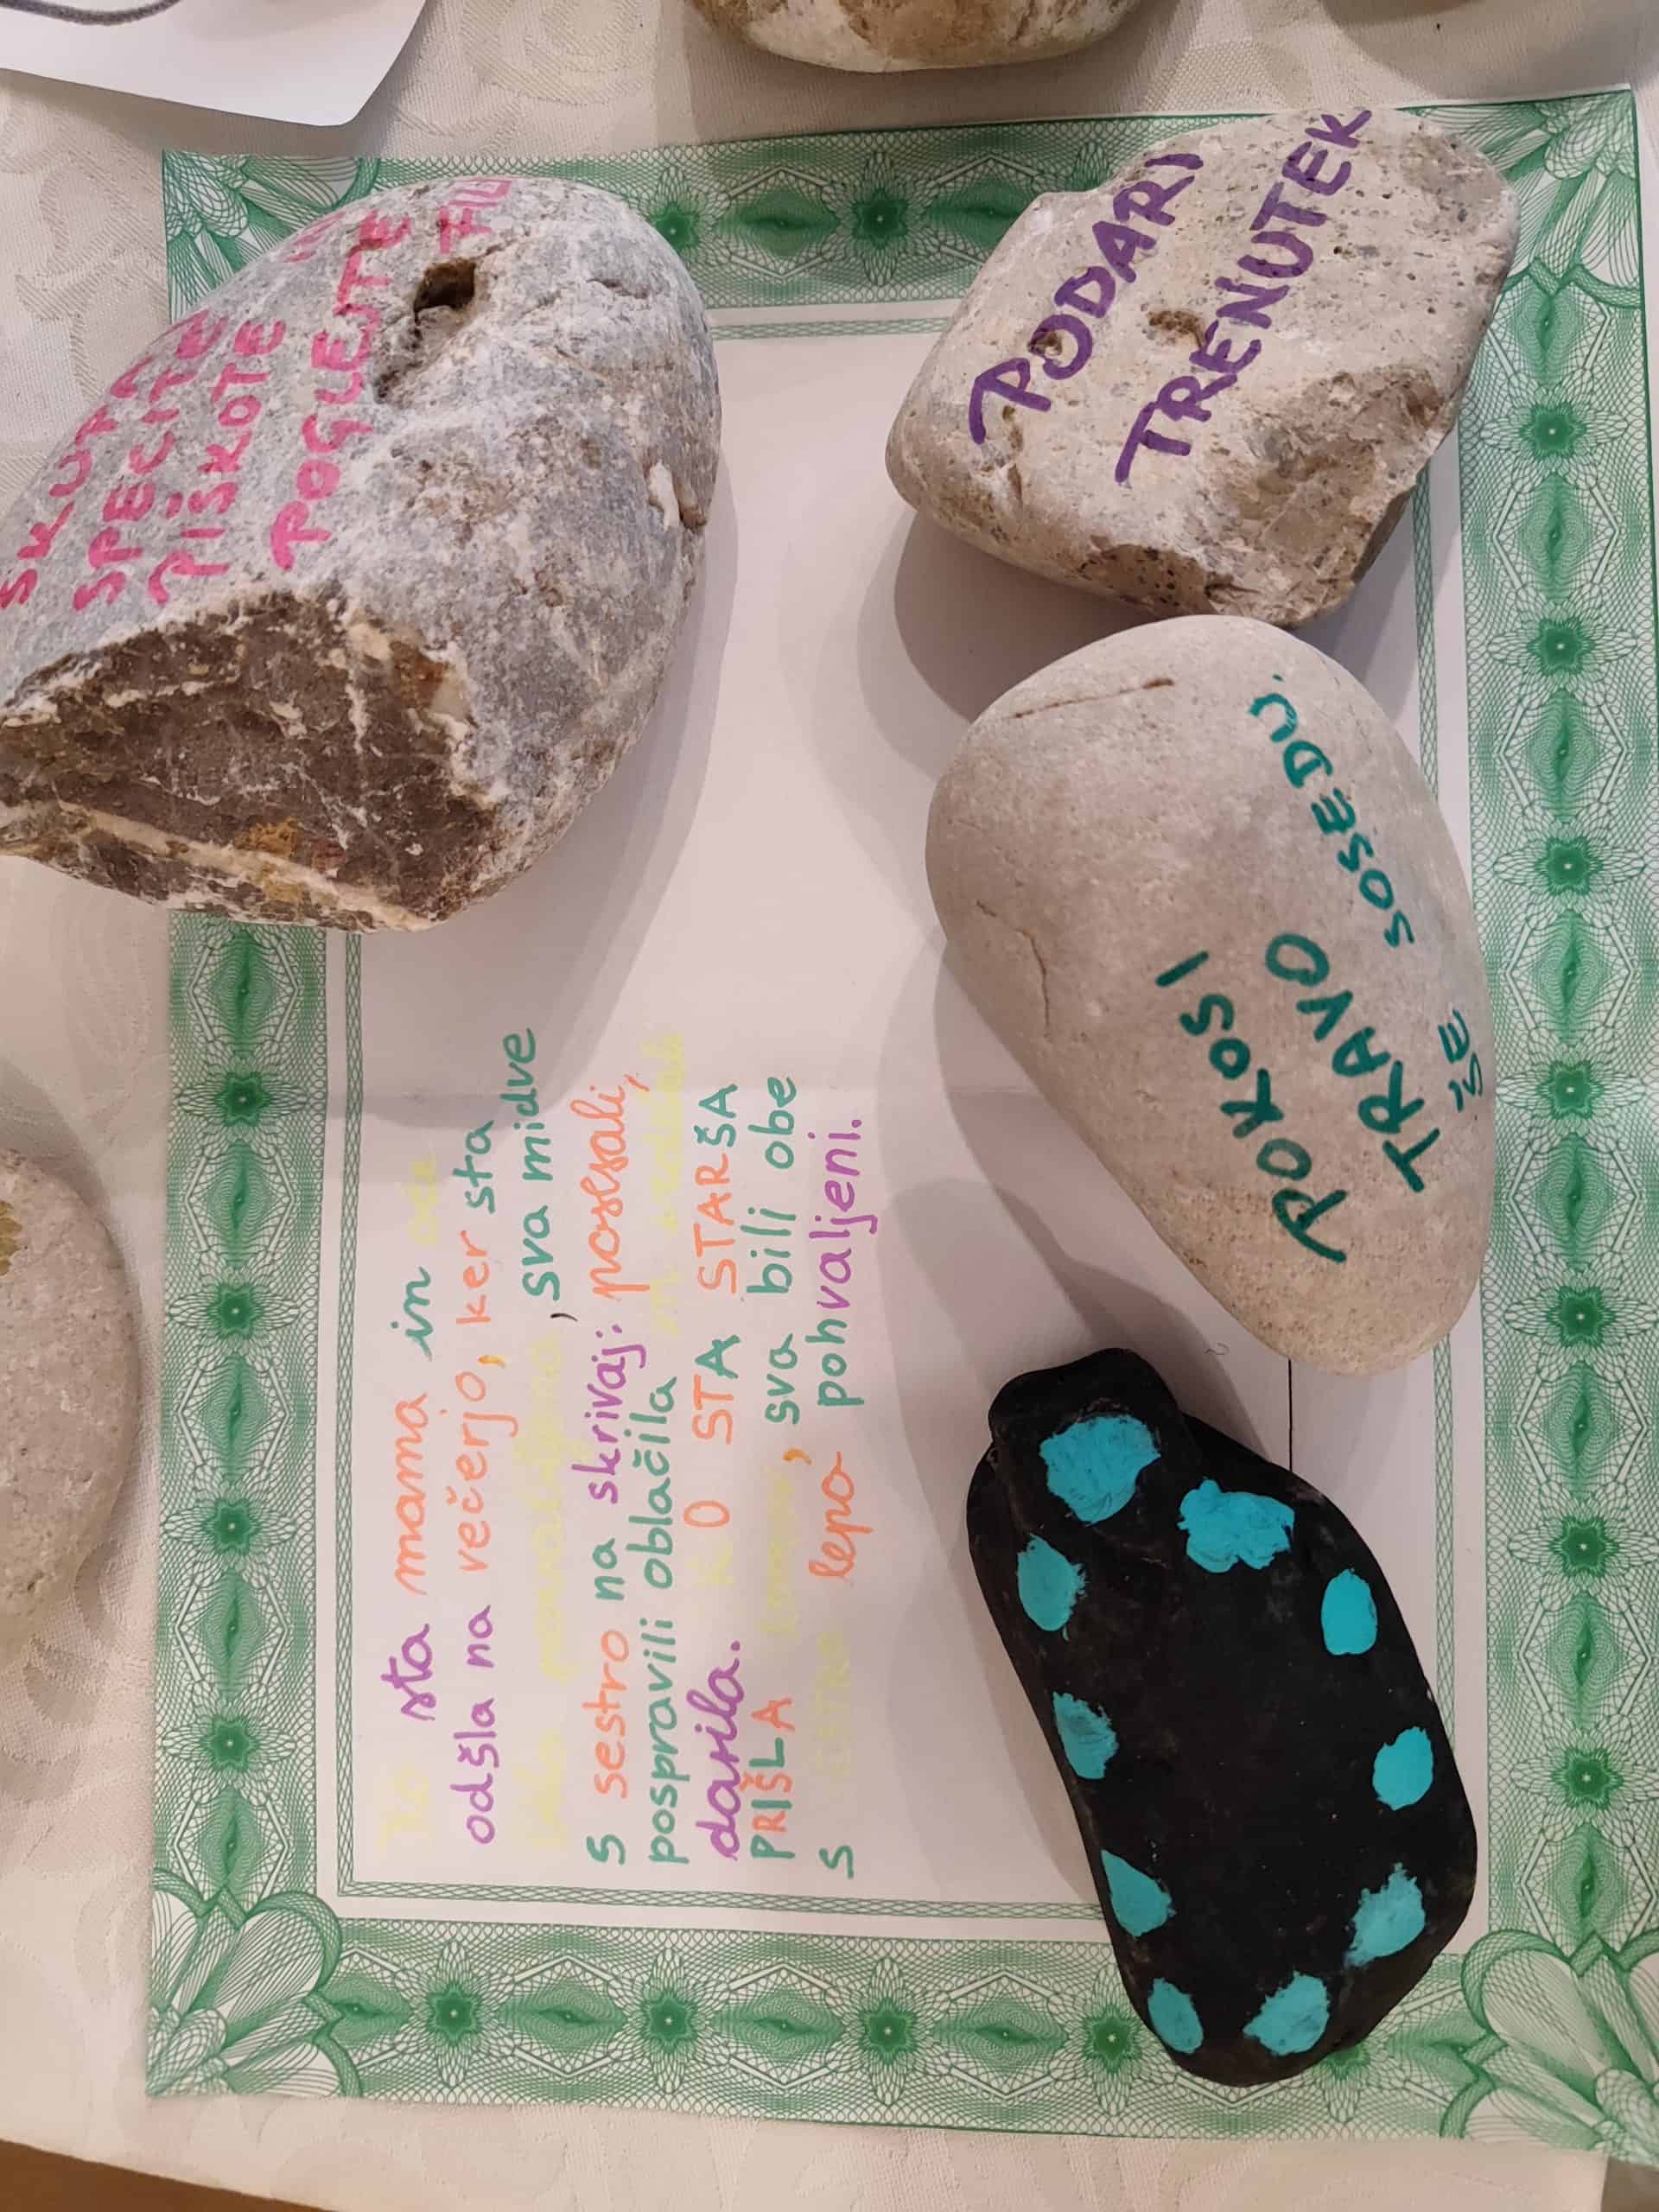 Ko sta mama in oče
odšla na večerjo, ker sta
, sva midve
s sestro na skrivaj: posesali,
pospravili oblačila
darila. KO STA STARŠA
PRIŠLA domov, sva bili obe
s lepo pohvaljeni.
SPECITE
PIŠKOTE
POGLEJTE
PODARI
TRENUTEK
POKOSI
TRAVO
ŠE SOSEDU.